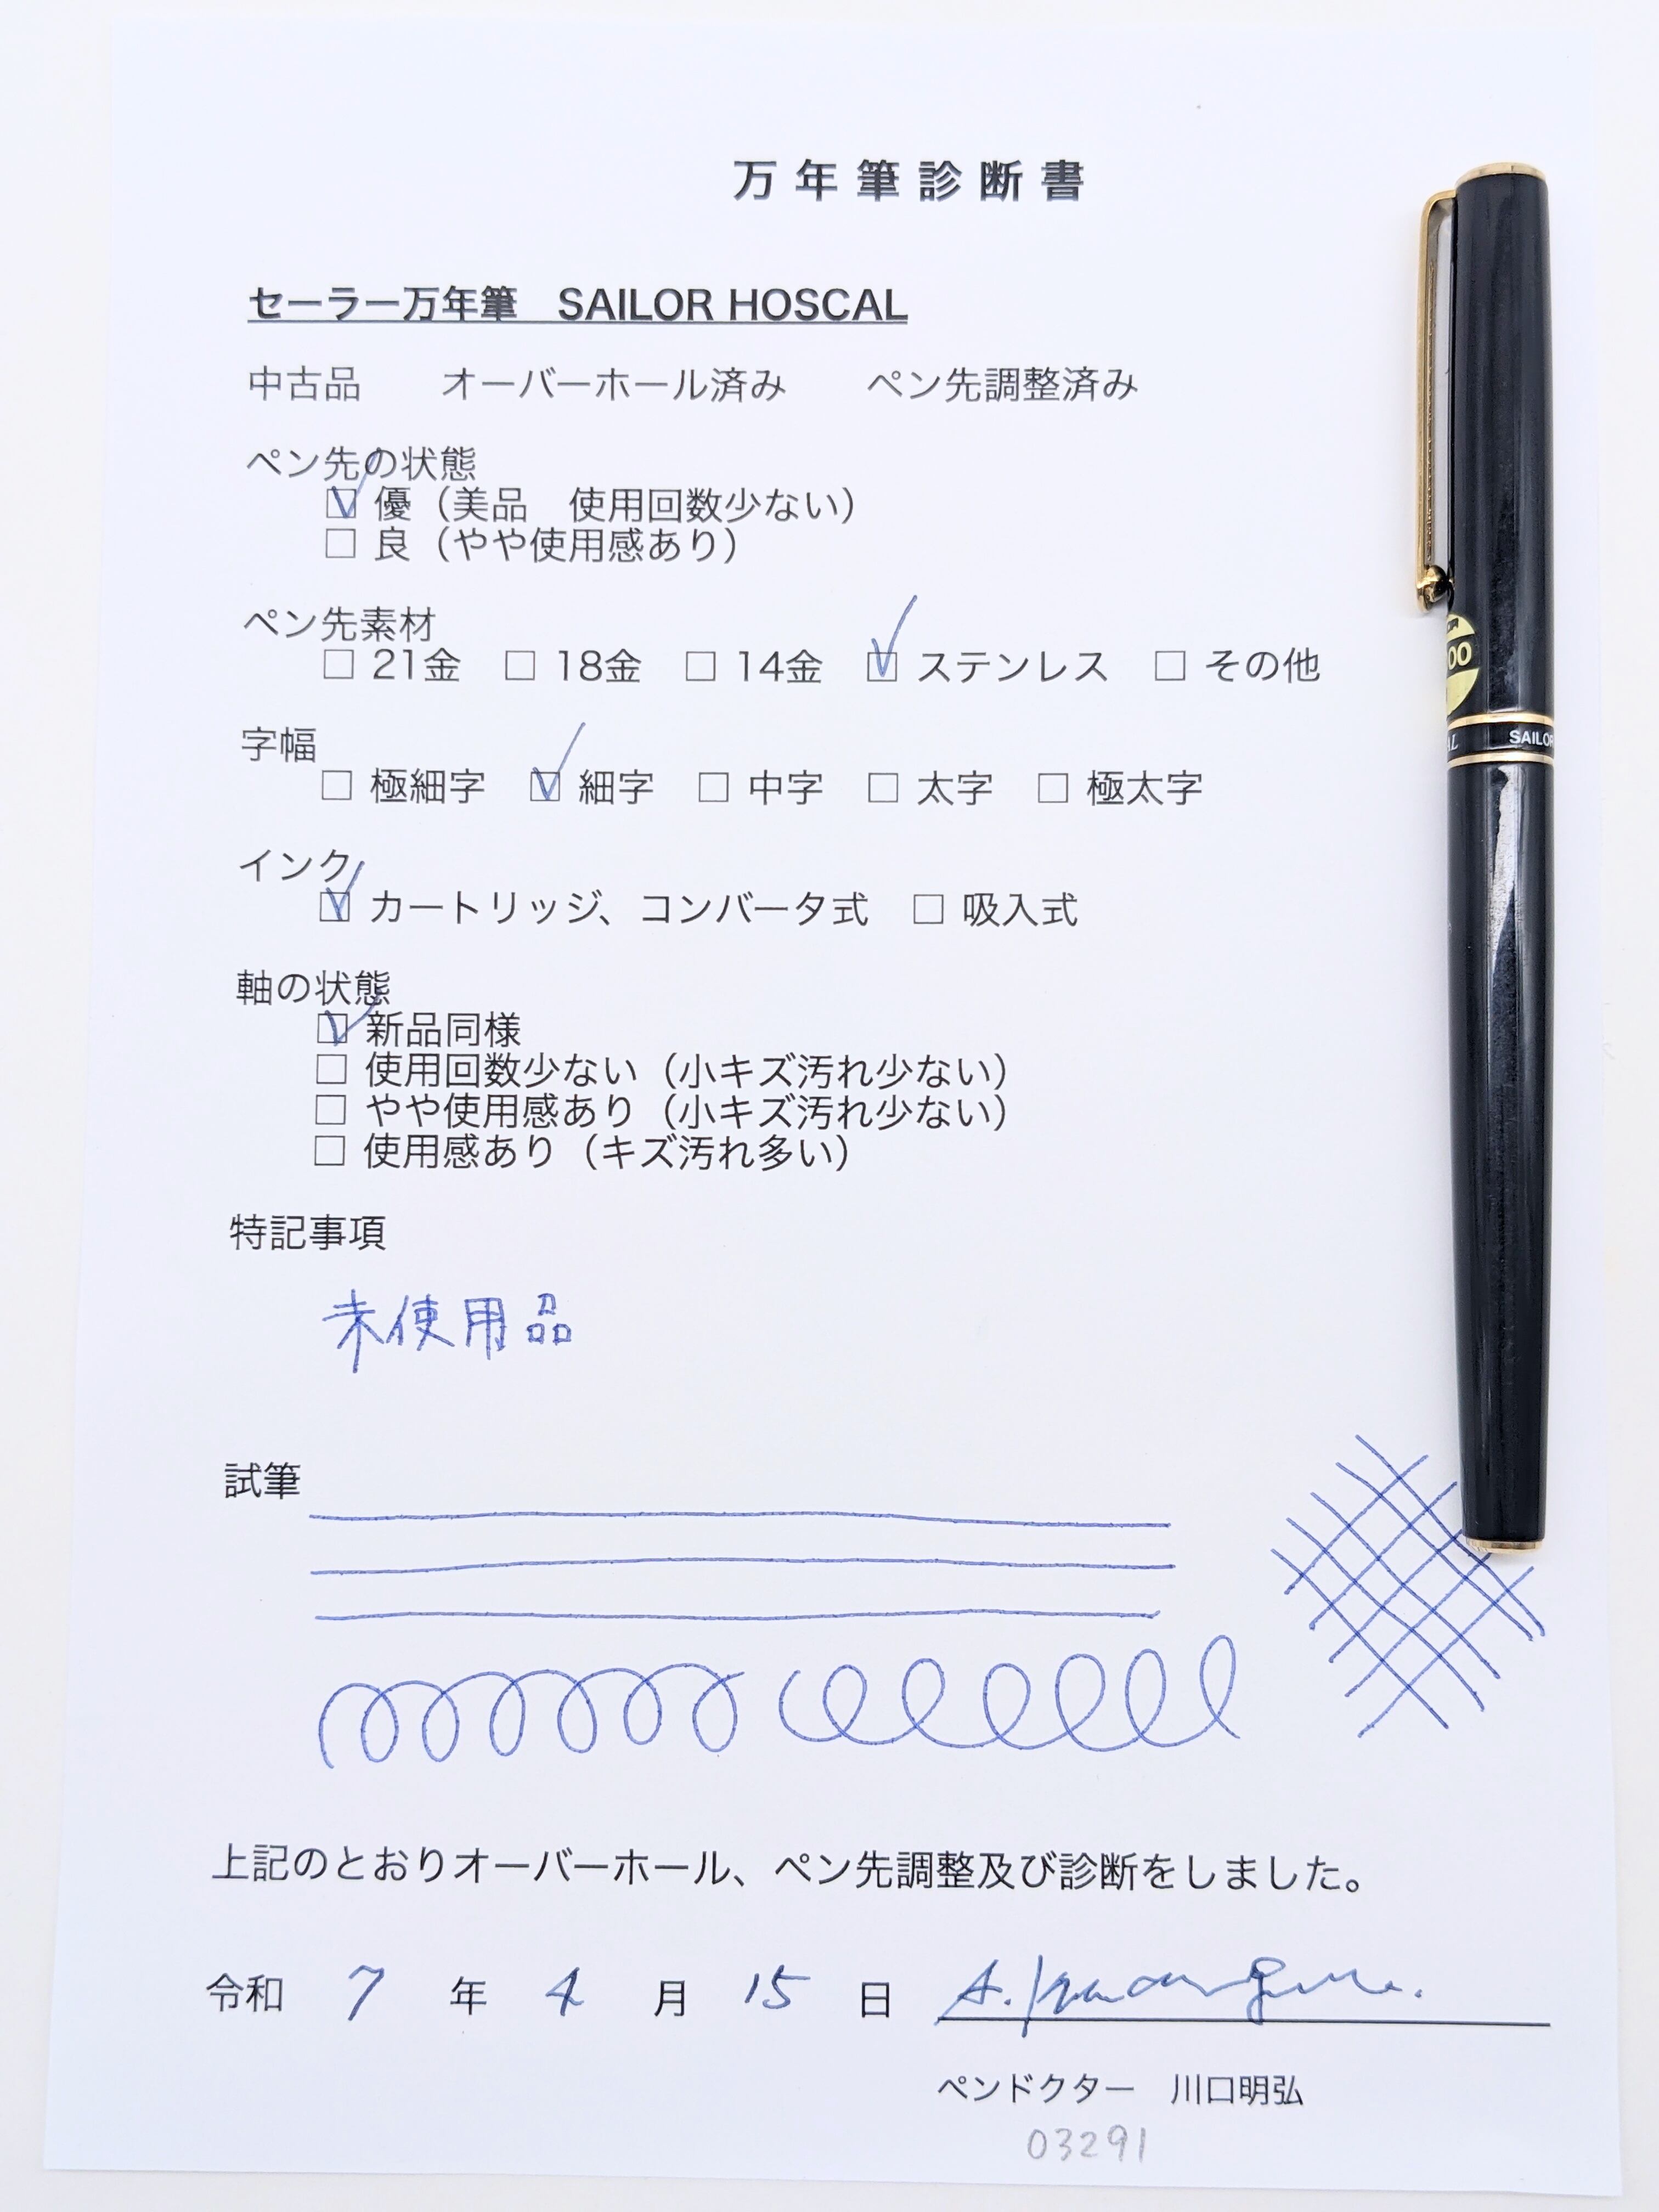 万年筆診断書
セーラー万年筆　SAILOR HOSCAL
中古品　　オーバーホール済み　　ペン先調整済み
ペン先の状態
☑ 優（美品　使用回数少ない）
☐ 良（やや使用感あり）
ペン先素材
☐ 21金　☐ 18金　☐ 14金　☑ ステンレス　☐ その他
字幅
☐ 極細字　☑ 細字　☐ 中字　☐ 太字　☐ 極太字
インク
☑ カートリッジ、コンバータ式　☐ 吸入式
軸の状態
☑ 新品同様
☐ 使用回数少ない（小キズ汚れ少ない）
☐ やや使用感あり（小キズ汚れ少ない）
☐ 使用感あり（キズ汚れ多い）
特記事項
未使用品
試筆
上記のとおりオーバーホール、ペン先調整及び診断をしました。
令和 7 年 4 月 15 日 A. Kawaguchi.
ペンドクター　川口明弘
03291
00
SAILOR